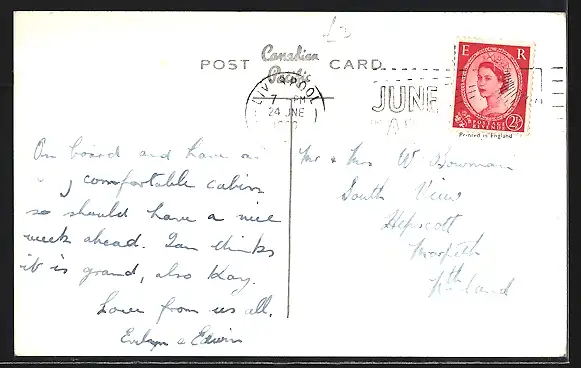 £2
POST CARD
Canadian
Pacific
LIVERPOOL
7 PM
24 JNE
JUNE
E R
POSTAGE
2½
Printed in England
On board and have a
comfortable cabin
so should have a nice
week ahead. Ian thinks
it is grand, also Kay.
Love from us all.
Evelyn & Edwin
Mr & Mrs W Bowman
South View
Hepscott
Morpeth
Nthland